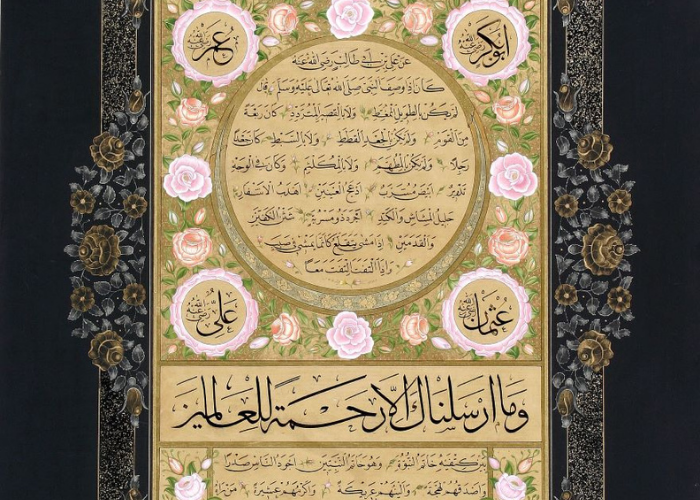 ابوبكر رضي الله عنه
عمر رضي الله عنه
عن علي بن ابي طالب رضي الله عنه
كان اذا وصف النبي صلى الله تعالى عليه وسلم قال
لم يكن بالطويل الممغط ولا بالقصير المتردد كان ربعة
من القوم ولم يكن بالجعد القطط ولا بالسبط كان جعدا
رجلا ولم يكن بالمطهم ولا بالمكلثم وكان في الوجه
تدوير ابيض مشرب ادعج العينين اهدب الاشفار
جليل المشاش والكتد اجرد ذو مسربة شثن الكفين
والقدمين اذا مشى يتقلع كانما يمشي في صبب
واذا التفت التفت معا
عثمان رضي الله عنه
علي رضي الله عنه
وما ارسلناك الا رحمة للعالمين
بين كتفيه خاتم النبوة وهو خاتم النبيين اجود الناس صدرا
واصدقهم لهجة والينهم عريكة واكرمهم عشيرة